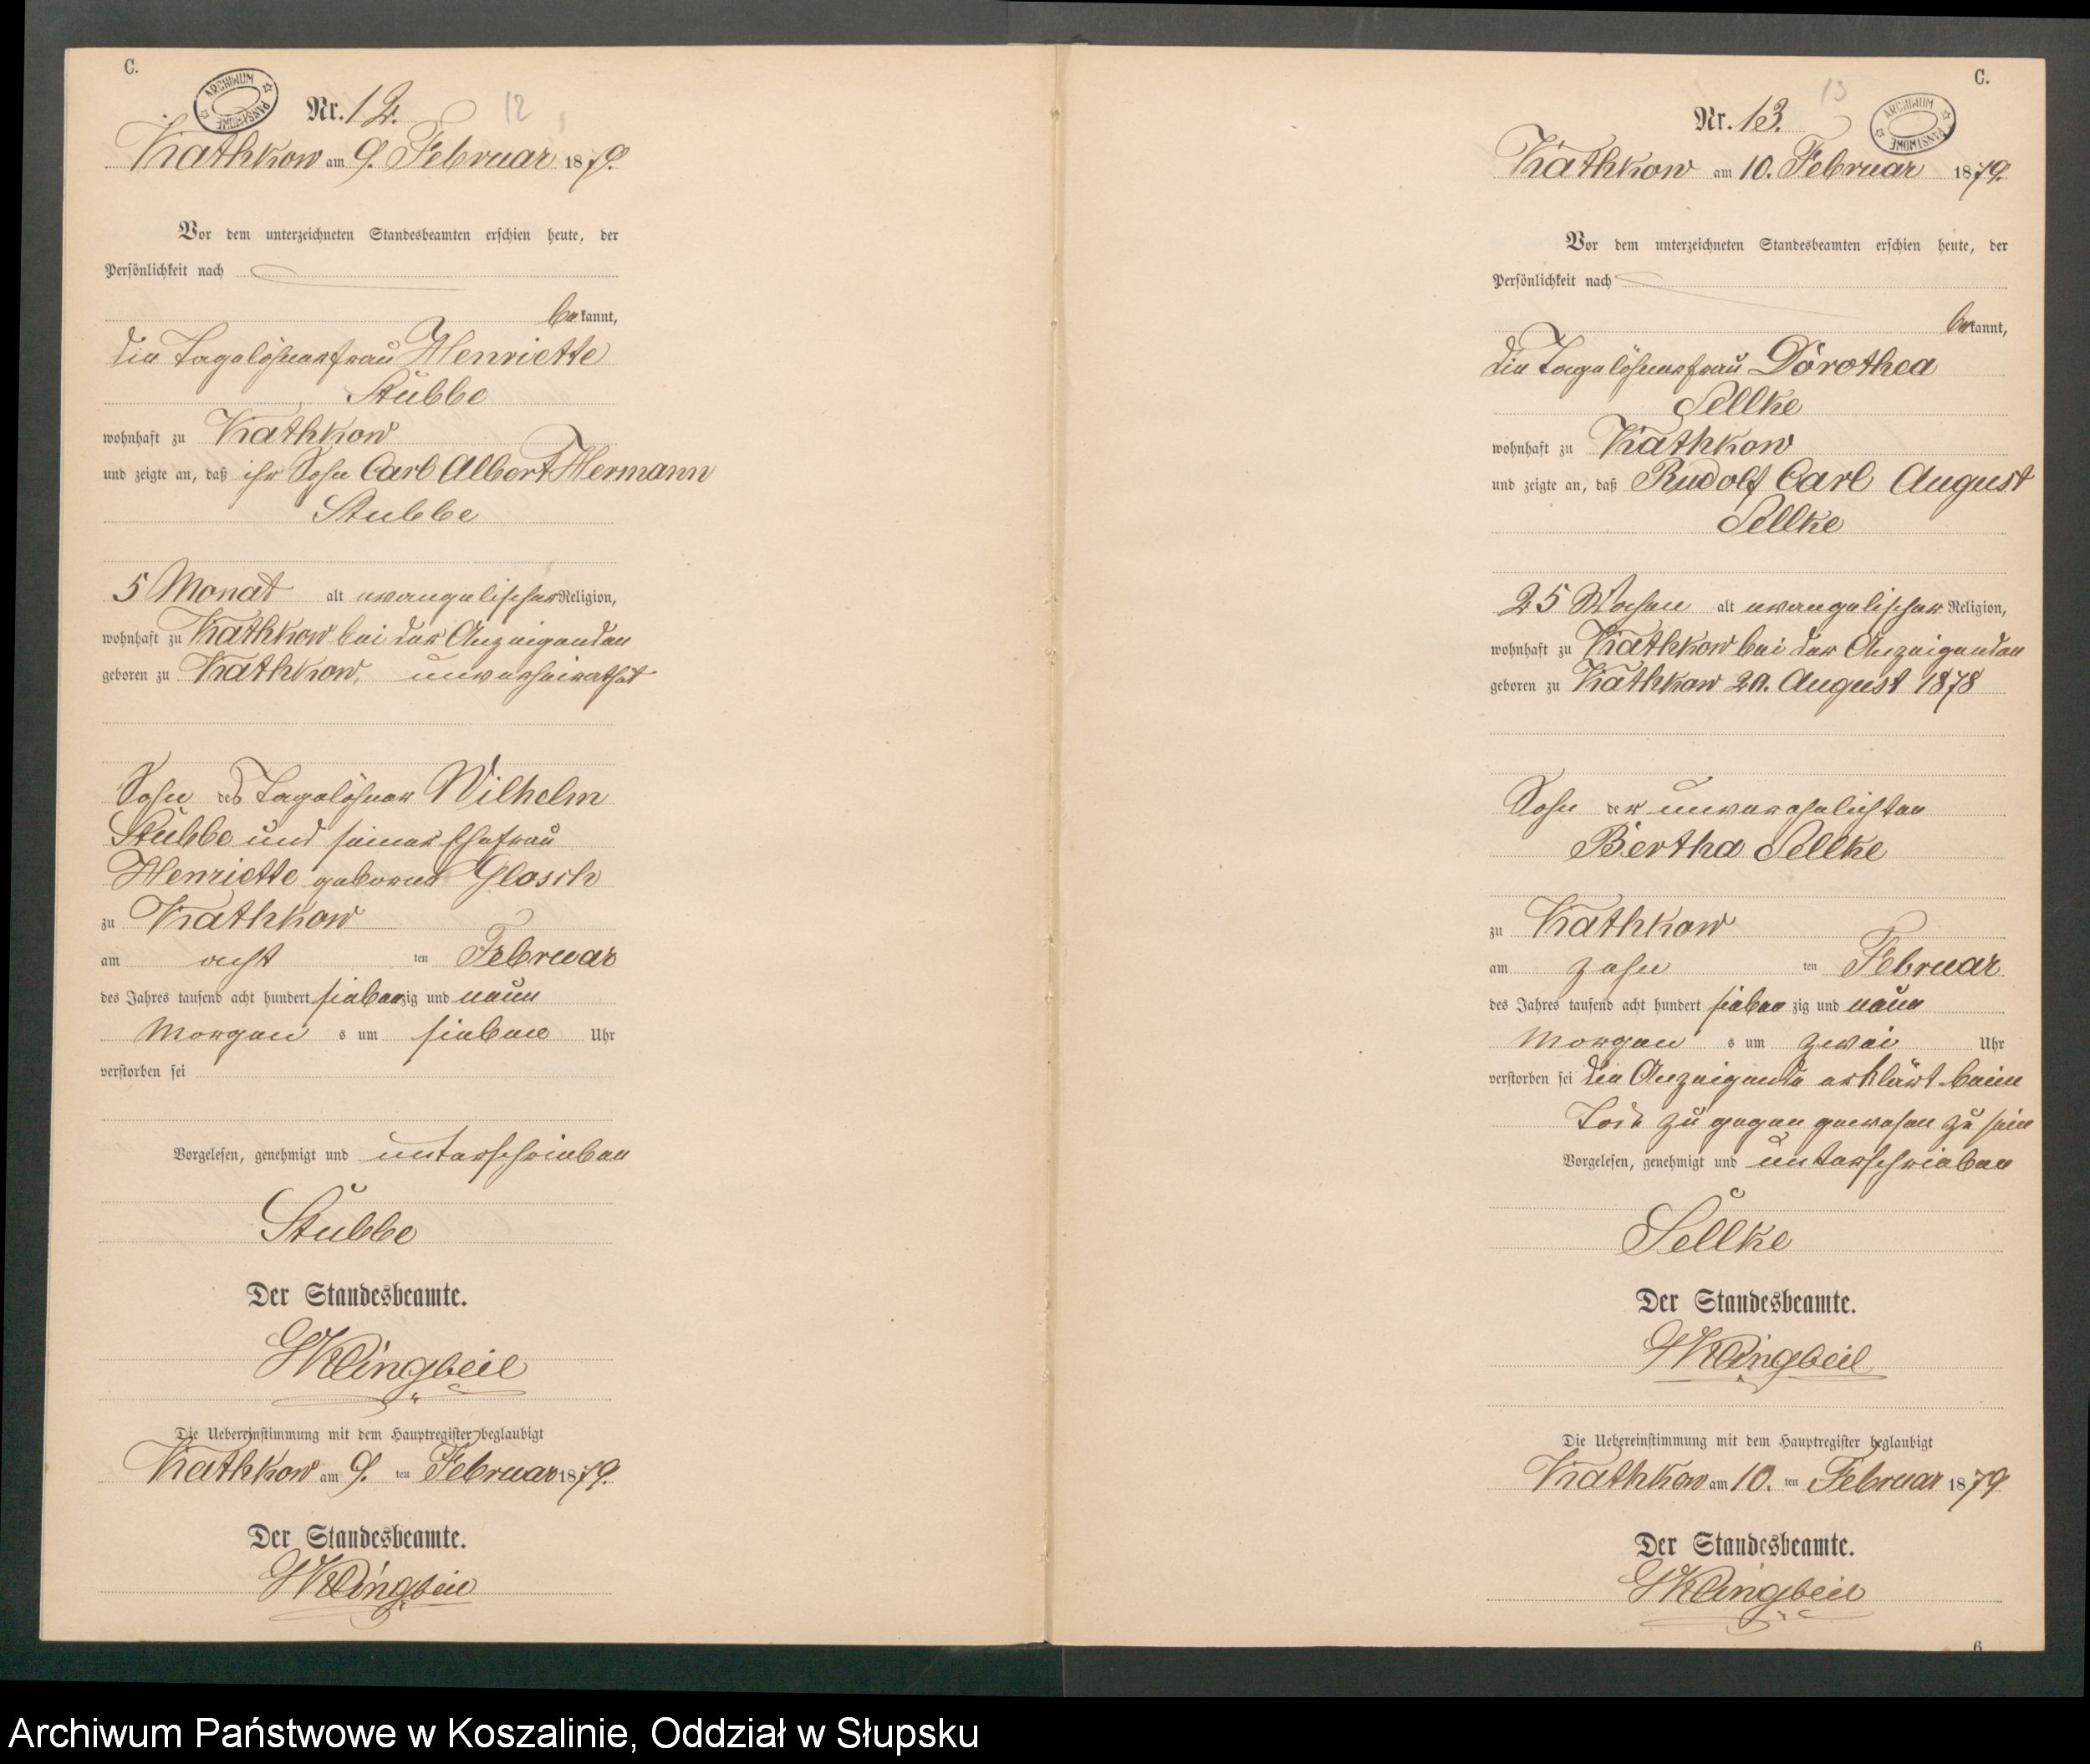 C.
ARCHIWUM PAŃSTWOWE
Nr. 12.
12
Kathkow am 9. Februar 1879.
Vor dem unterzeichneten Standesbeamten erschien heute, der
Persönlichkeit nach
bekannt,
die Tagelöhnerfrau Henriette
Stubbe
wohnhaft zu Kathkow
und zeigte an, daß ihr Sohn Carl Albert Hermann
Stubbe
5 Monat alt evangelischer Religion,
wohnhaft zu Kathkow bei der Anzeigenden
geboren zu Kathkow, unverheirathet
Sohn des Tagelöhner Wilhelm
Stubbe und seiner Ehefrau
Henriette geborne Glasch
zu Kathkow
am acht ten Februar
des Jahres tausend acht hundert siebenzig und neun
Morgen s um sieben Uhr
verstorben sei
Vorgelesen, genehmigt und unterschrieben
Stubbe
Der Standesbeamte.
Klingbeil
Die Uebereinstimmung mit dem Hauptregister beglaubigt
Kathkow am 9. ten Februar 1879.
Der Standesbeamte.
Klingbeil
C.
13
ARCHIWUM PAŃSTWOWE
Nr. 13.
Kathkow am 10. Februar 1879.
Vor dem unterzeichneten Standesbeamten erschien heute, der
Persönlichkeit nach
bekannt,
die Tagelöhnerfrau Dorothea
Sellke
wohnhaft zu Kathkow
und zeigte an, daß Rudolf Carl August
Sellke
25 Wochen alt evangelischer Religion,
wohnhaft zu Kathkow bei der Anzeigenden
geboren zu Kathkow August 1878
Sohn der unverehelichten
Bertha Sellke
zu Kathkow
am zehn ten Februar
des Jahres tausend acht hundert siebenzig und neun
Morgen s um zwei Uhr
verstorben sei die Anzeigende erklärt beim
Tode zu gegen gewesen zu sein
Vorgelesen, genehmigt und unterschrieben
Sellke
Der Standesbeamte.
Klingbeil
Die Uebereinstimmung mit dem Hauptregister beglaubigt
Kathkow am 10. ten Februar 1879
Der Standesbeamte.
Klingbeil
6
Archiwum Państwowe w Koszalinie, Oddział w Słupsku